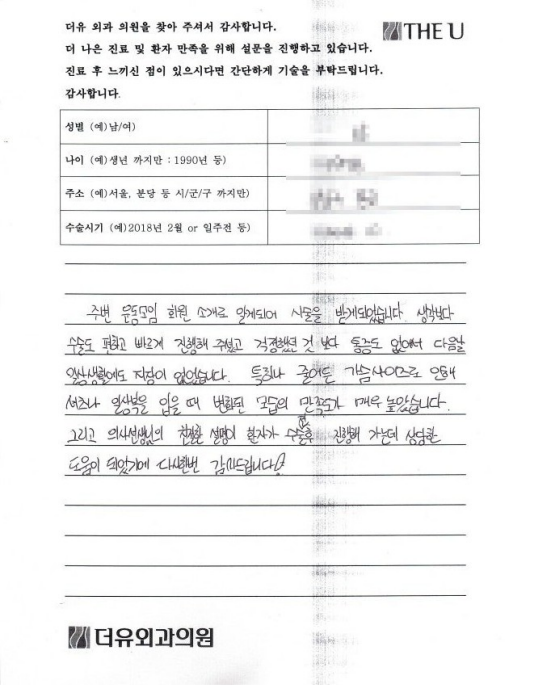 더유 외과 의원을 찾아 주셔서 감사합니다.
THE U
더 나은 진료 및 환자 만족을 위해 설문을 진행하고 있습니다.
진료 후 느끼신 점이 있으시다면 간단하게 기술을 부탁드립니다.
감사합니다.
성별 (예)남/여)
나이 (예)생년 까지만 : 1990년 등)
주소 (예)서울, 분당 등 시/군/구 까지만)
수술시기 (예)2018년 2월 or 일주전 등)
주변 운동모임 회원 소개로 알게되어 시술을 받게되었습니다. 생각보다
수술도 편하고 빠르게 진행해 주셨고 걱정했던 것 보다 통증도 없어서 다음날
일상생활에도 지장이 없었습니다. 특히나 줄어든 가슴사이즈로 인해
셔츠나 일상복을 입을 때 변화된 모습의 만족도가 매우 높았습니다.
그리고 의사선생님의 친절한 설명이 환자가 수술전후 진행해 가는데 상당한
도움이 되었기에 다시한번 감사드립니다!
더유외과의원